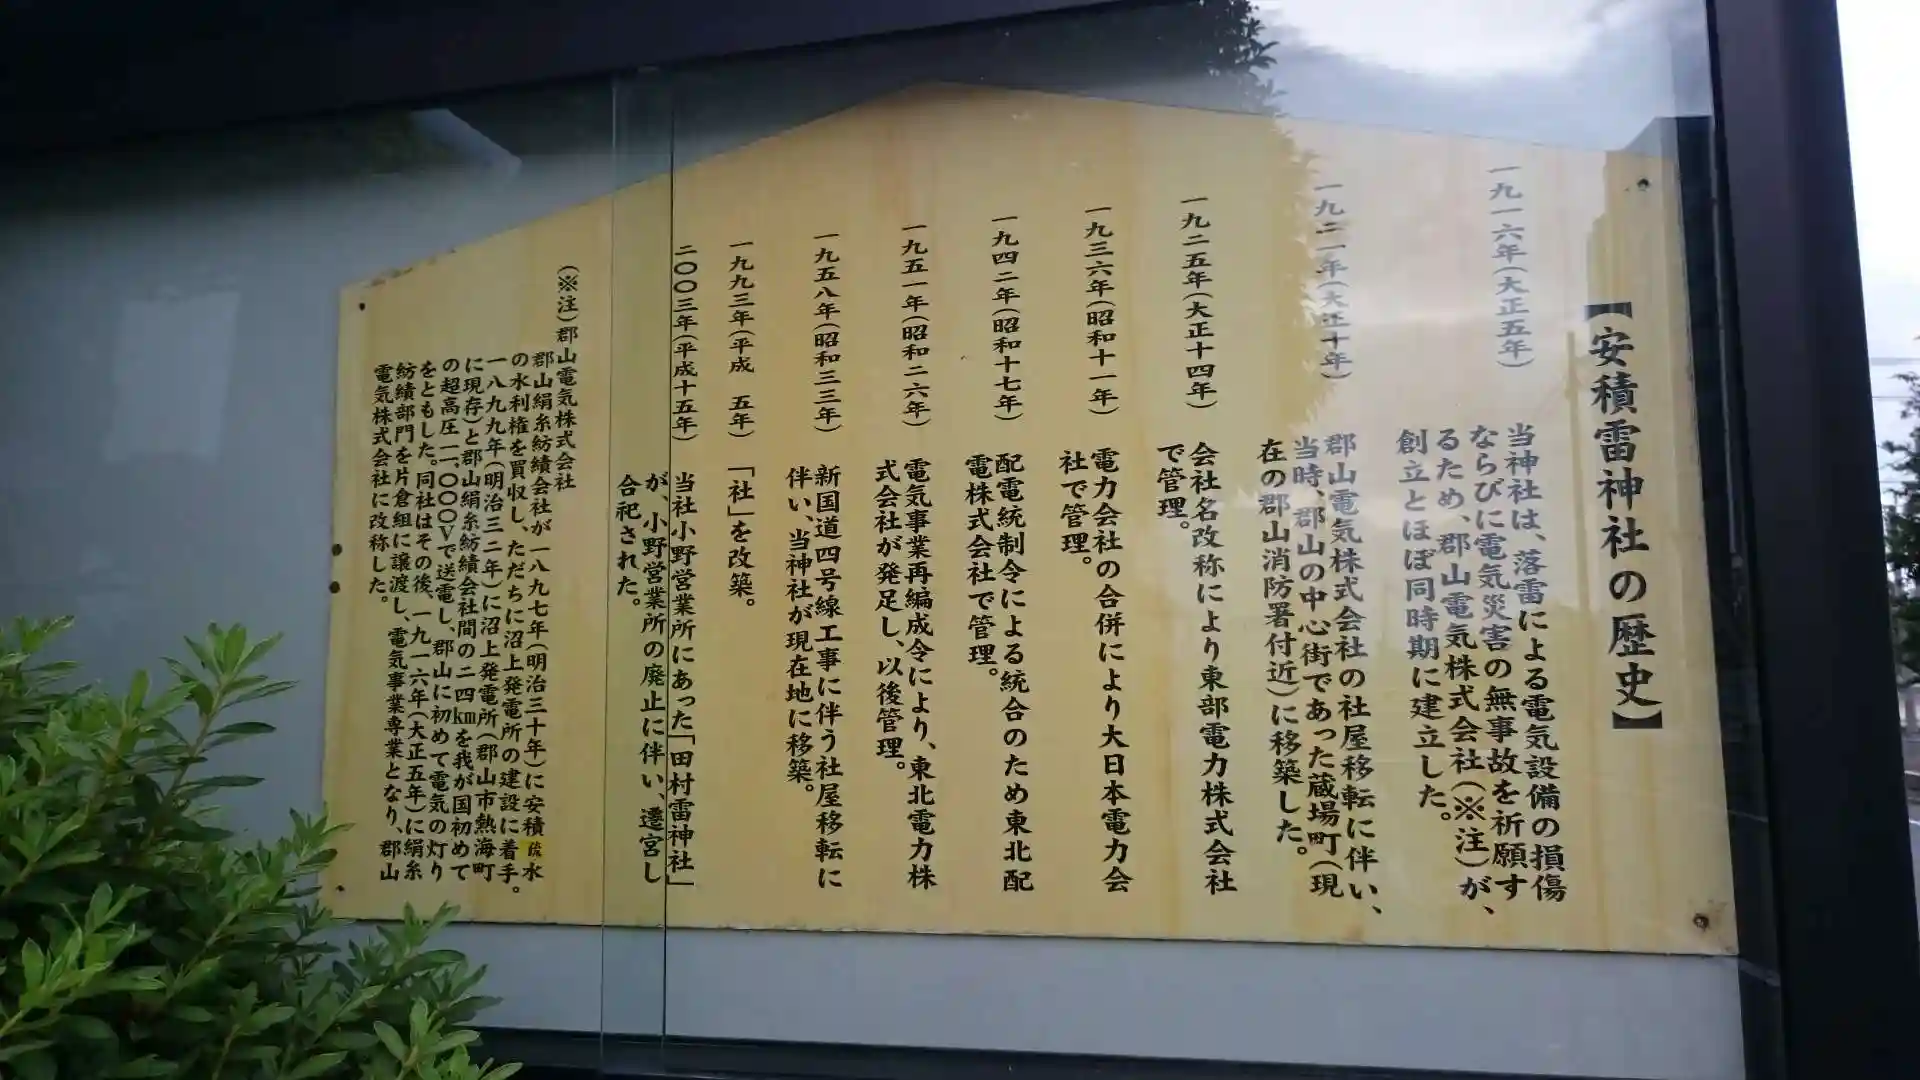 【安積雷神社の歴史】
一九一六年(大正五年)
当神社は、落雷による電気設備の損傷
ならびに電気災害の無事故を祈願す
るため、郡山電気株式会社(※注)が、
創立とほぼ同時期に建立した。
一九二一年(大正十年)
郡山電気株式会社の社屋移転に伴い、
当時、郡山の中心街であった蔵場町(現
在の郡山消防署付近)に移築した。
一九二五年(大正十四年)
会社名改称により東部電力株式会社
で管理。
一九三六年(昭和十一年)
電力会社の合併により大日本電力会
社で管理。
一九四二年(昭和十七年)
配電統制令による統合のため東北配
電株式会社で管理。
一九五一年(昭和二六年)
電気事業再編成令により、東北電力株
式会社が発足し、以後管理。
一九五八年(昭和三三年)
新国道四号線工事に伴う社屋移転に
伴い、当神社が現在地に移築。
一九九三年(平成 五年)
「社」を改築。
二〇〇三年(平成十五年)
当社小野営業所にあった「田村雷神社」
が、小野営業所の廃止に伴い、遷宮し
合祀された。
(※注)郡山電気株式会社
郡山絹糸紡績会社が一八九七年(明治三十年)に安積疏水
の水利権を買収し、ただちに沼上発電所の建設に着手。
一八九九年(明治三二年)に沼上発電所(郡山市熱海町
に現存)と郡山絹糸紡績会社間の二四kmを我が国初めて
の超高圧一一、〇〇〇Vで送電し、郡山に初めて電気の灯り
をともした。同社はその後、一九一六年(大正五年)に絹糸
紡績部門を片倉組に譲渡し、電気事業専業となり、郡山
電気株式会社に改称した。